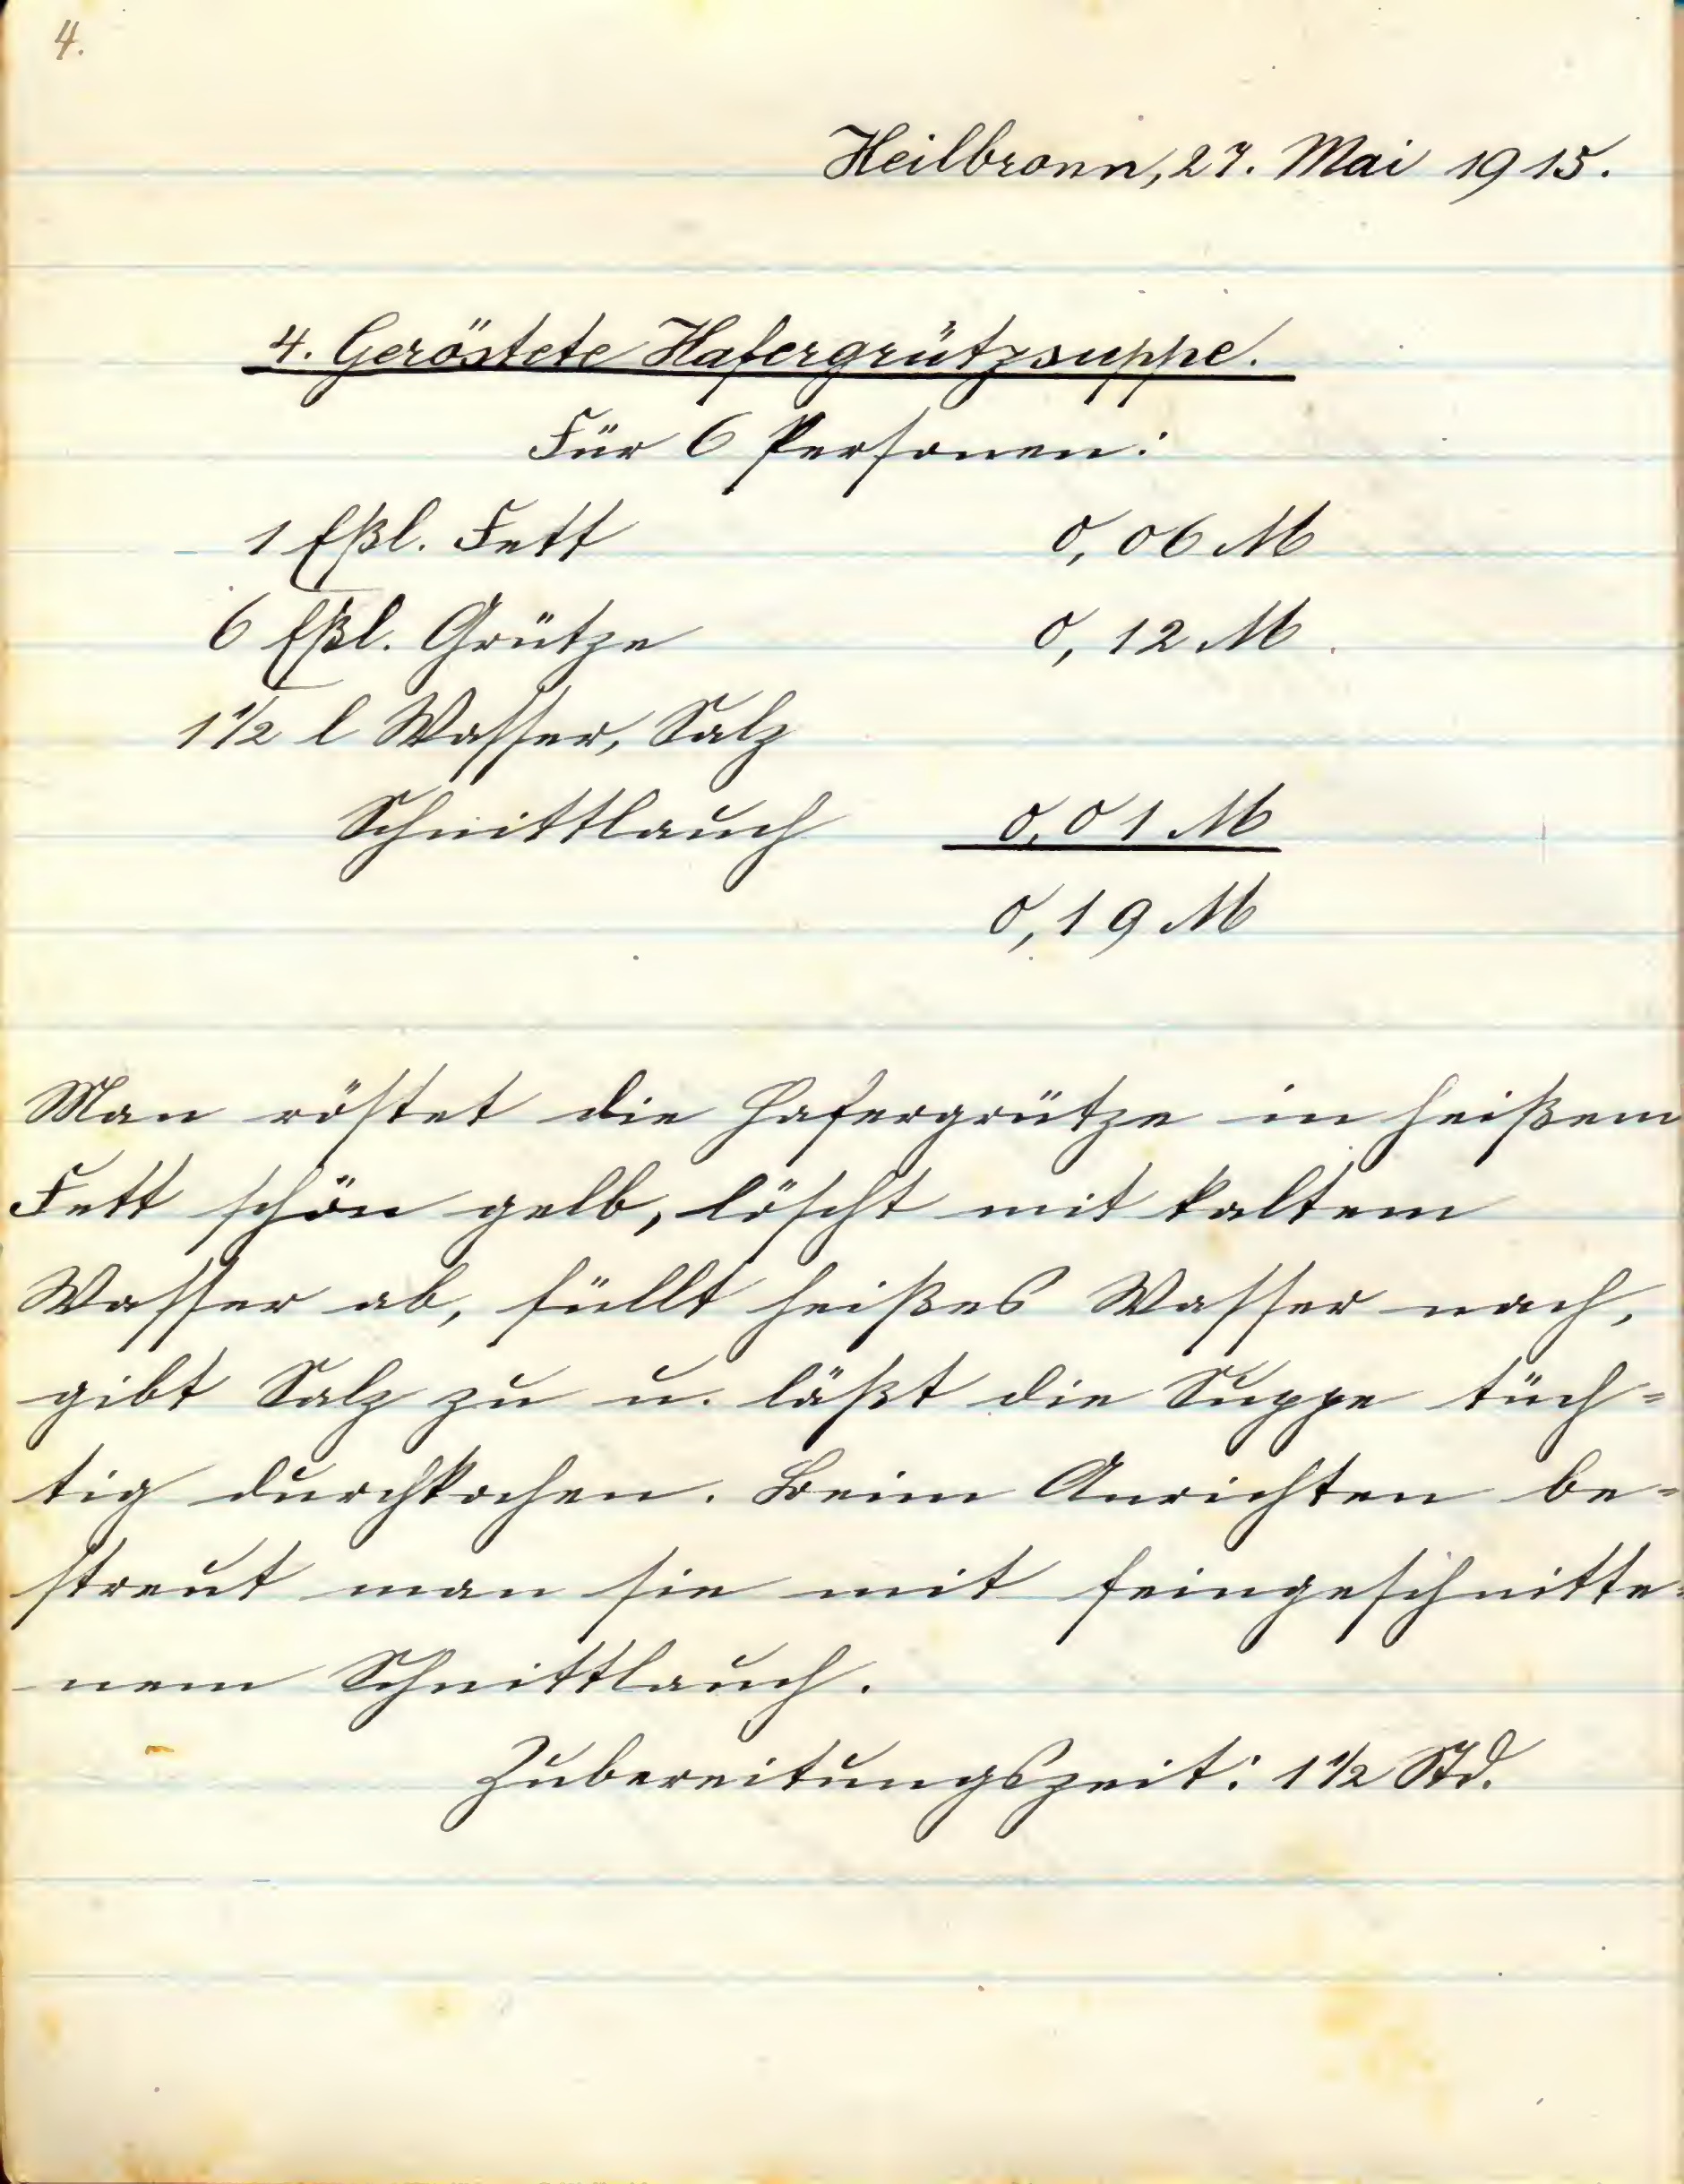 4.
Heilbronn, 27. Mai 1915.
4. Geröstete Hafergrützsuppe.
Für 6 Personen:
1 Eßl. Fett 0,06 M
6 Eßl. Grütze 0,12 M
1 1/2 l Wasser, Salz
Schnittlauch 0,01 M
0,19 M
Man röstet die Hafergrütze in heißem
Fett schön gelb, löscht mit kaltem
Wasser ab, füllt heißes Wasser nach,
gibt Salz zu u. läßt die Suppe tüch=
tig durchkochen. Beim Anrichten be=
streut man sie mit feingeschnitte=
nem Schnittlauch.
Zubereitungszeit: 1 1/2 Std.